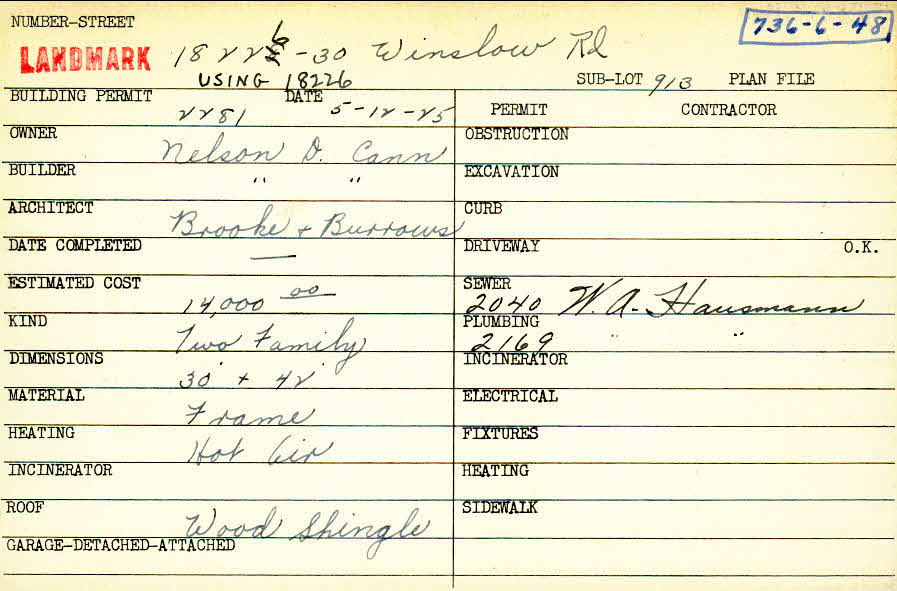 NUMBER-STREET
736-6-48
LANDMARK 18226-30 Winslow Rd
USING 18226 SUB-LOT 913 PLAN FILE
BUILDING PERMIT 2281 DATE 5-12-25 PERMIT CONTRACTOR
OWNER Nelson D. Cann OBSTRUCTION
BUILDER " " EXCAVATION
ARCHITECT Brooke + Burrows CURB
DATE COMPLETED — DRIVEWAY O.K.
ESTIMATED COST 14,000 00 SEWER 2040 W. A. Hausmann
KIND Two Family PLUMBING 2169 " "
DIMENSIONS 30' + 42' INCINERATOR
MATERIAL Frame ELECTRICAL
HEATING Hot Air FIXTURES
INCINERATOR HEATING
ROOF Wood Shingle SIDEWALK
GARAGE-DETACHED-ATTACHED